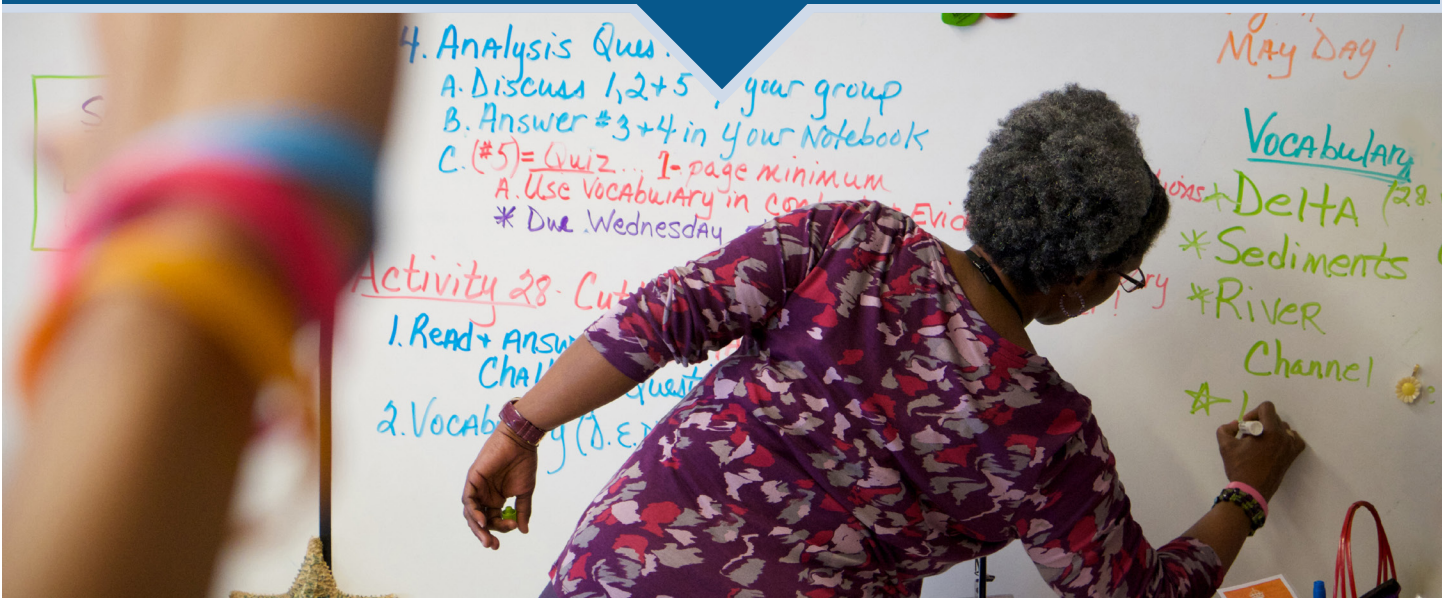 4. Analysis Ques.
A. Discuss 1, 2 + 5 your group
B. Answer #3 + 4 in your Notebook
C. (#5) = Quiz... 1-page minimum
A. Use Vocabulary in
* Due Wednesday
Activity 28-
1. Read +
2. (D.E.
May Day!
Vocabulary
* Delta (28.
* Sediments
* River
Channel